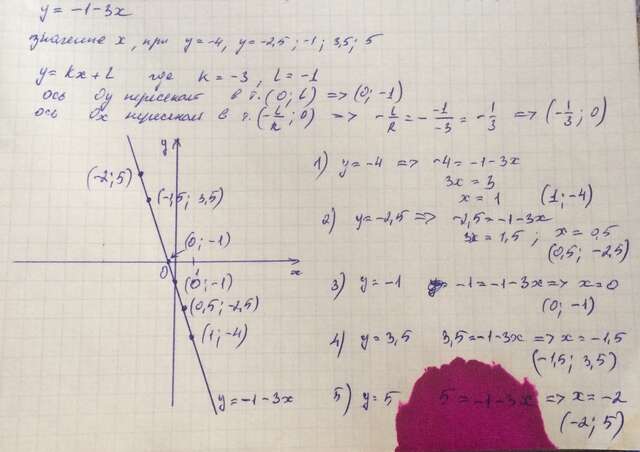 y = -1-3x
значение x, при y=-4, y=-2,5; -1; 3,5; 5
y = kx + l где k = -3, l = -1
ось Oy пересекает в т. (0; l) => (0; -1)
ось Ox пересекает в т. (-l/k; 0) => -l/k = - -1/-3 = -1/3 => (-1/3; 0)
y
(-2; 5)
(-1,5; 3,5)
(0; -1)
0
1
x
(0; -1)
(0,5; -2,5)
(1; -4)
y = -1-3x
1) y = -4 => -4 = -1-3x
3x = 3
x = 1 (1; -4)
2) y = -2,5 => -2,5 = -1-3x
3x = 1,5; x = 0,5
(0,5; -2,5)
3) y = -1 -1 = -1-3x => x = 0
(0; -1)
4) y = 3,5 3,5 = -1-3x => x = -1,5
(-1,5; 3,5)
5) y = 5 5 = -1-3x => x = -2
(-2; 5)